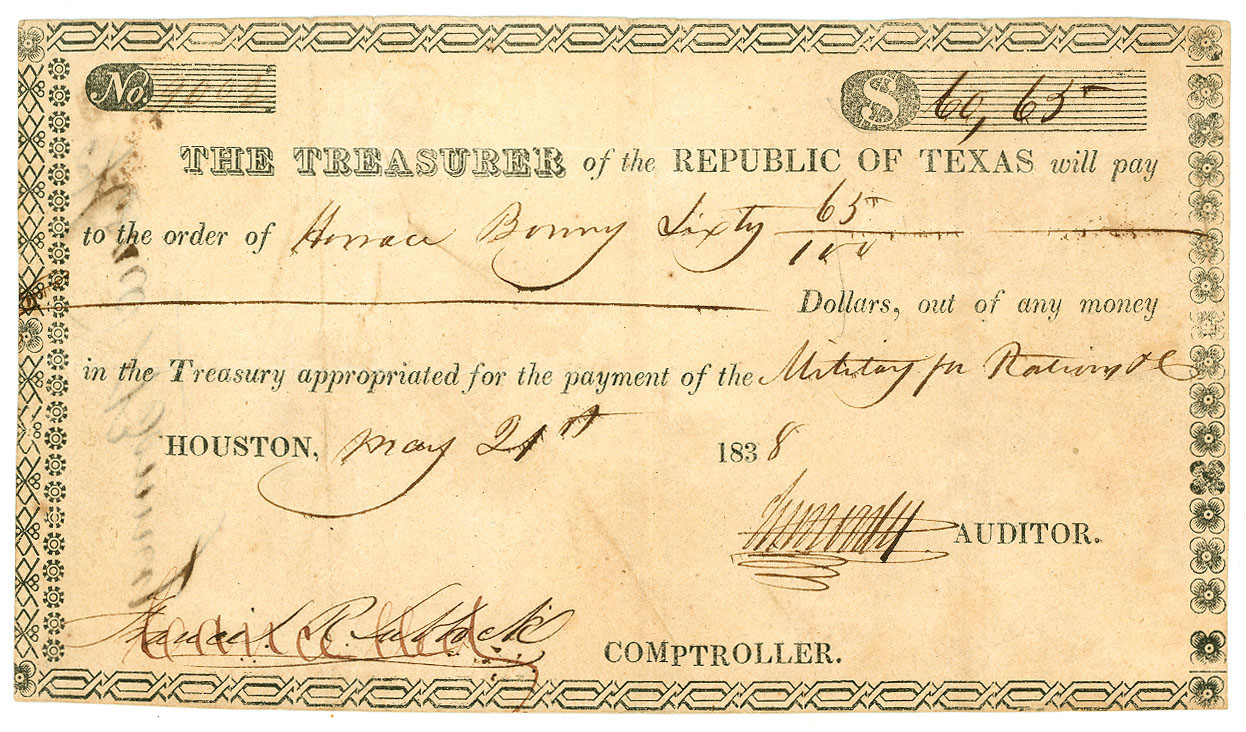 No.
$ 60,65
THE TREASURER of the REPUBLIC OF TEXAS will pay
to the order of Horrace Bonny Sixty 65/100
Dollars, out of any money
in the Treasury appropriated for the payment of the Military for Rations &c
HOUSTON, may 21st 1838
AUDITOR.
Francis R. Lubbock COMPTROLLER.
Cancelled